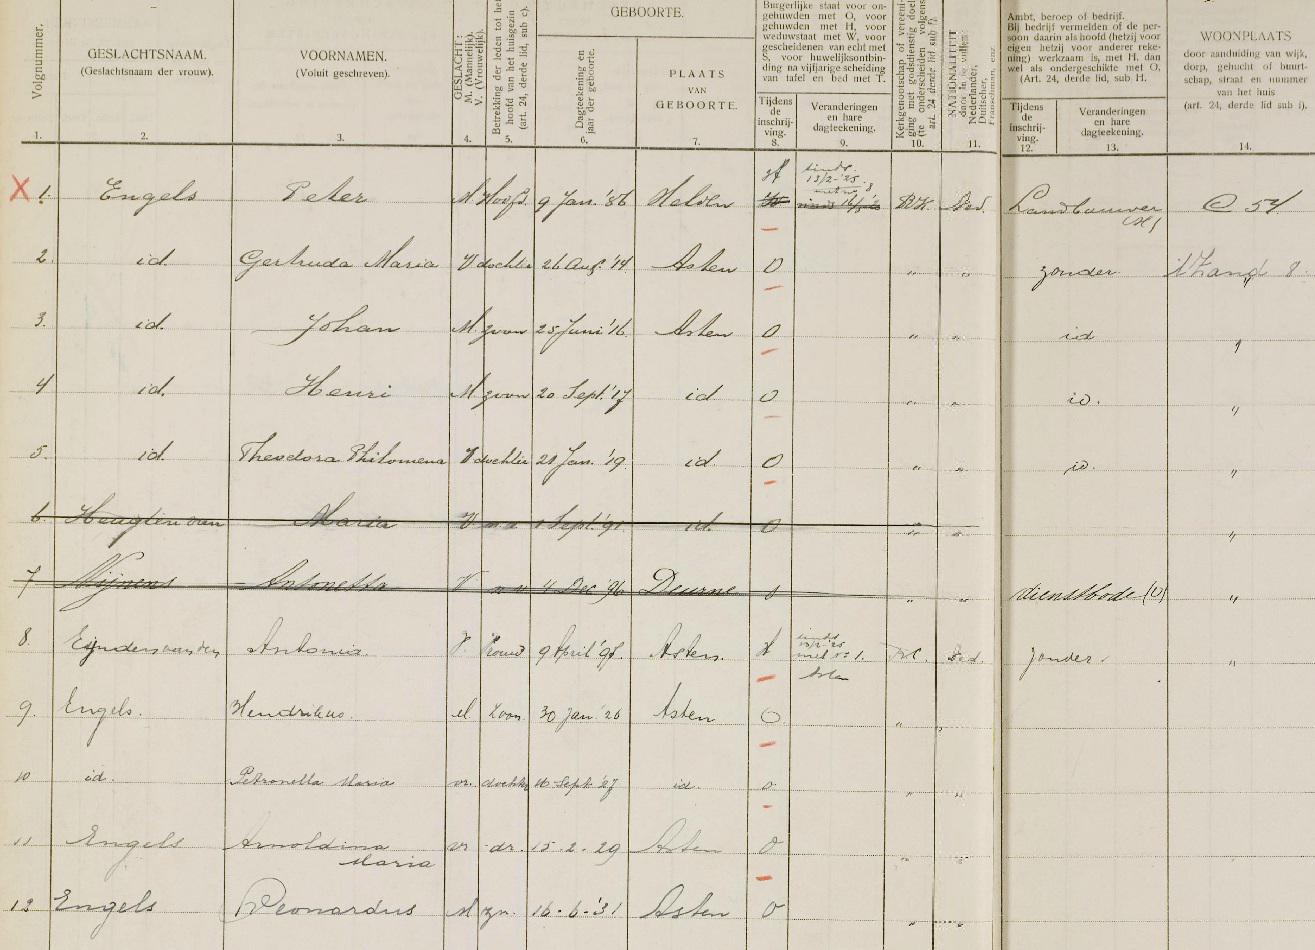 Volgnummer.
1.
GESLACHTSNAAM.
(Geslachtsnaam der vrouw).
2.
VOORNAMEN.
(Voluit geschreven).
3.
GESLACHT:
M. (Mannelijk).
V. (Vrouwelijk).
4.
Betrekking der leden tot het
hoofd van het huisgezin
(art. 24, derde lid, sub c).
5.
GEBOORTE.
Dagteekening en
jaar der geboorte.
6.
PLAATS
VAN
GEBOORTE.
7.
Burgerlijke staat voor on-
gehuwden met O, voor
gehuwden met H, voor
weduwstaat met W, voor
gescheidenen van echt met
S, voor huwelijksontbin-
ding na vijfjarige scheiding
van tafel en bed met T.
Tijdens
de
inschrij-
ving.
8.
Veranderingen
en hare
dagteekening.
9.
Kerkgenootschap of vereeni-
ging met godsdienstig doel
(te onderscheiden volgens
art. 24 derde lid sub f).
10.
NATIONALITEIT
Nederlander,
Duitscher,
Franschman, enz.
11.
Ambt, beroep of bedrijf.
Bij bedrijf vermelden of de per-
soon daarin als hoofd (hetzij voor
eigen hetzij voor anderer reke-
ning) werkzaam is, met H. dan
wel als ondergeschikte met O,
(Art. 24, derde lid, sub H.
Tijdens
de
inschrij-
ving.
12.
Veranderingen
en hare
dagteekening.
13.
WOONPLAATS
door aanduiding van wijk,
dorp, gehucht of buurt-
schap, straat en nummer
van het huis
(art. 24, derde lid sub i).
14.
X 1. Engels Peter M Hoofd 9 Jan. '86 Helden H sinds 13/2-'25 met no 8 RK Ned. Landbouwer (H) C 54
2. id. Gertruda Maria V dochter 26 Aug. '14 Asten O " " zonder 't Zand 8 "
3. id. Johan M zoon 25 Juni '16 Asten O " " id "
4 id. Henri M zoon 20 Sept. '17 id O " " id. "
5. id. Theodora Philomena V dochter 21 Jan. '19 id. O " " id. "
6. Heugten van Maria V 1 Sept. '91 id. O " " "
7 Nijnens Antonetta V 4 Dec '96 Deurne " " dienstbode (O) "
8. Eijnden van den Antonia. V. vrouw 9 April '98. Asten. H sinds 13/2-'25 met no 1. Asten RK. Ned. zonder. "
9. Engels. Hendrikus. M zoon 30 Jan. '26 Asten O " "
10 id. Petronella Maria vr. dochter 10 Sept. '27 id. o " "
11 Engels Arnoldina Maria vr dr. 15-2-29 Asten O " "
12 Engels Leonardus M zn. 16-6-'31 Asten O " "